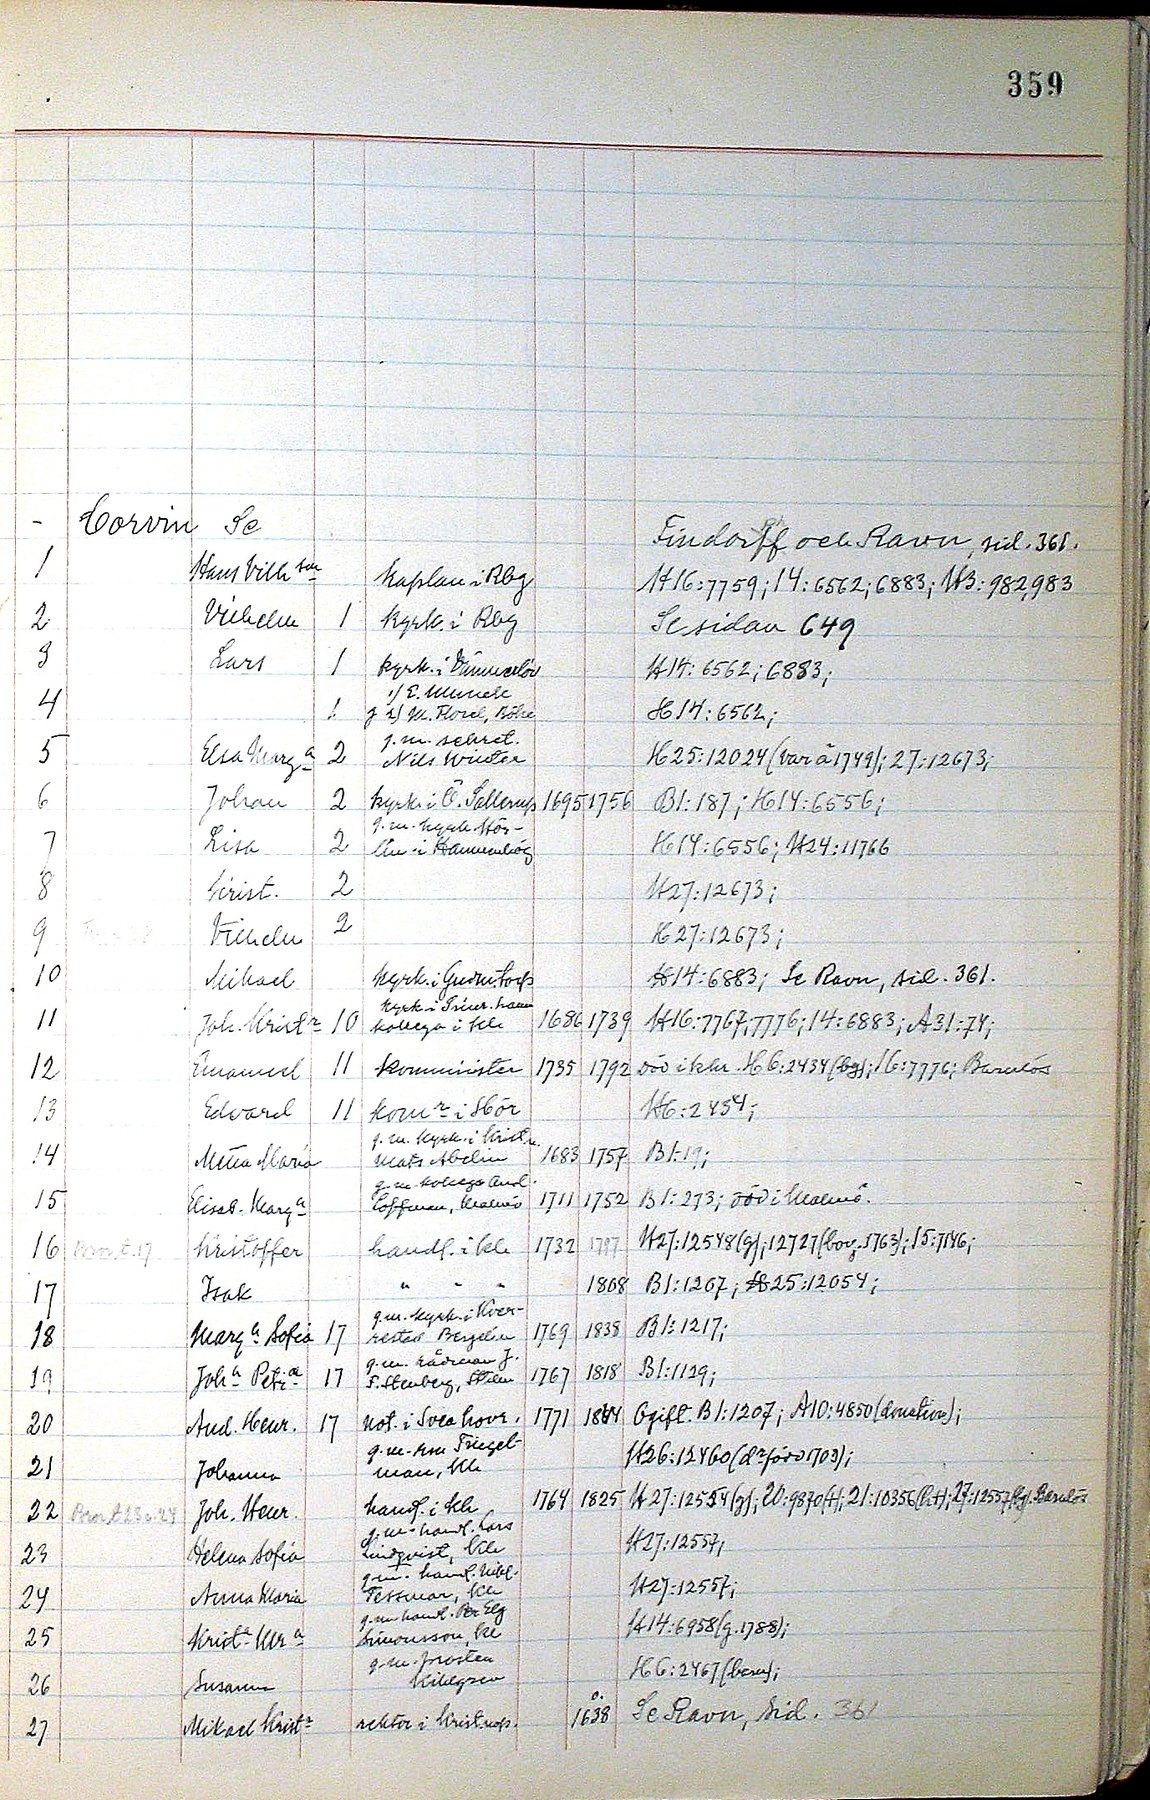 359
- Corvin Se Findorff och Ravn, sid. 361.
1 Hans Vilh kaplan i Rbg H16:7759; 14:6562; 6883; H3:982,983
2 Vilhelm 1 kyrk. i Rbg Se sidan 649
3 Lars 1 kyrk. i H14:6562; 6883;
1) E. Munck
4 1 g 2) M. Florel, H14:6562;
g.m. sekret.
5 Elsa Marg.a 2 Nils H25:12024 (var å 1749); 27:12673;
6 Johan 2 kyrk. i Ö. Sallerup 1695 1756 B1:187; H14:6556;
g.m. kyrk. Hör-
7 Lisa 2 lin i Hammenhög H14:6556; H24:11766
8 Krist. 2 H27:12673;
9 Vilhelm 2 H27:12673;
10 Mikael kyrk. i H14:6883; Se Ravn, sid. 361.
kyrk. i hamn
11 Joh. Krist.n 10 kollega i Kh 1686 1739 H16:7767, 7776; 14:6883; A31:74;
12 Emanuel 11 komminister 1735 1792 död i H6:2434 (bg); 16:7776; Barnlös
13 Edvard 11 kom.r i Hör H6:2454;
g.m. kyrk. i Krist.
14 Maria Mats Abelin 1683 1757 B1:19;
g.m. kollega And.
15 Elisab. Marg.a Coffman, Malmö 1711 1752 B1:273; död i Malmö.
16 Bror t. 17 Kristoffer handl. i Kh 1732 1797 H27:12548 (g); 12727 (bog. 1763); 15:7146;
17 Isak " " " 1808 B1:1207; H25:12054;
g.m. kyrk. i Kver-
18 Marg.a Sofia 17 restad Bergelin 1769 1838 B1:1217;
g.m. rådman J.
19 Joh.a Petr.a 17 F. Stenberg, 1767 1818 B1:1129;
20 And. Henr. 17 not. i Svea hovr. 1771 1844 Ogift. B1:1207; A10:4850 (donation);
g.m.
21 Johanna man, Kh H26:12460
22 Bror t. 23 o. 24 Joh. Henr. handl. i Kh 1764 1825 H27:12554 (g); 20:9870 (t); 21:10356; 27:12557 Barnlös
g.m. handl. Lars
23 Helena Sofia Lindqvist, Kh H27:12557;
g.m. handl. Nikl.
24 Anna Maria Tessmar, Kh H27:12557;
g.m. handl. Per Elg
25 Krist.a M.a Simonsson, Kh H14:6958 (g. 1788);
g.m. prosten
26 Susanna Kihlgren H6:2467 (barn);
27 Mikael Krist.n rektor i o. 1638 Se Ravn, sid. 361